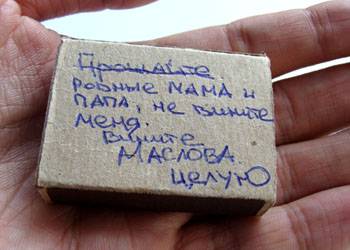 Прощайте
родные МАМА и
ПАПА, не вините
меня.
Вините
МАСЛОВА.
целую